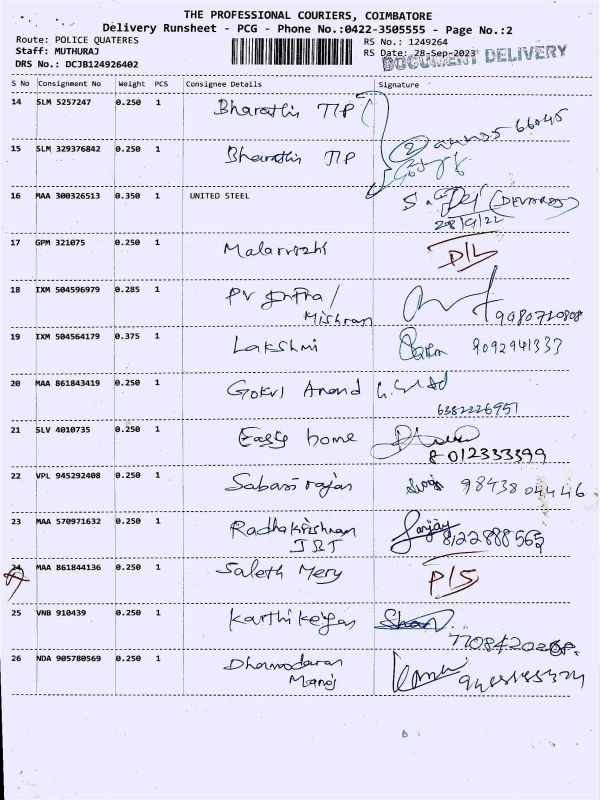 THE PROFESSIONAL COURIERS, COIMBATORE
Delivery Runsheet - PCG - Phone No.:0422-3505555 - Page No.:2
Route: POLICE QUATERES
Staff: MUTHURAJ
DRS No.: DCJB124926402
RS No.: 1249264
RS Date: 28-Sep-2023
DOCUMENT DELIVERY
S No Consignment No Weight PCS Consignee Details Signature
14 SLM 5257247 0.250 1 Bharathis TTP
66045
15 SLM 329376842 0.250 1 Bharathis TTP
16 MAA 300326513 0.350 1 UNITED STEEL
17 GPM 321075 0.250 1 Malarvizhi D/L
18 IXM 504596979 0.285 1 PV Infra /
Mishran 9980720808
19 IXM 504564179 0.375 1 Lakshmi 9092941333
20 MAA 861843419 0.250 1 Gokul Anand
6382226951
21 SLV 4010735 0.250 1 Easy home
8012333399
22 VPL 945292408 0.250 1 Sabari rajan 98438 04446
23 MAA 570971632 0.250 1 Radhakrishnan Sanjay
JBT 8122888565
24 MAA 861844136 0.250 1 Saleth Mery P/S
25 VNB 910439 0.250 1 Karthikeyan
26 NDA 905780569 0.250 1 Dhamodaran
Manoj